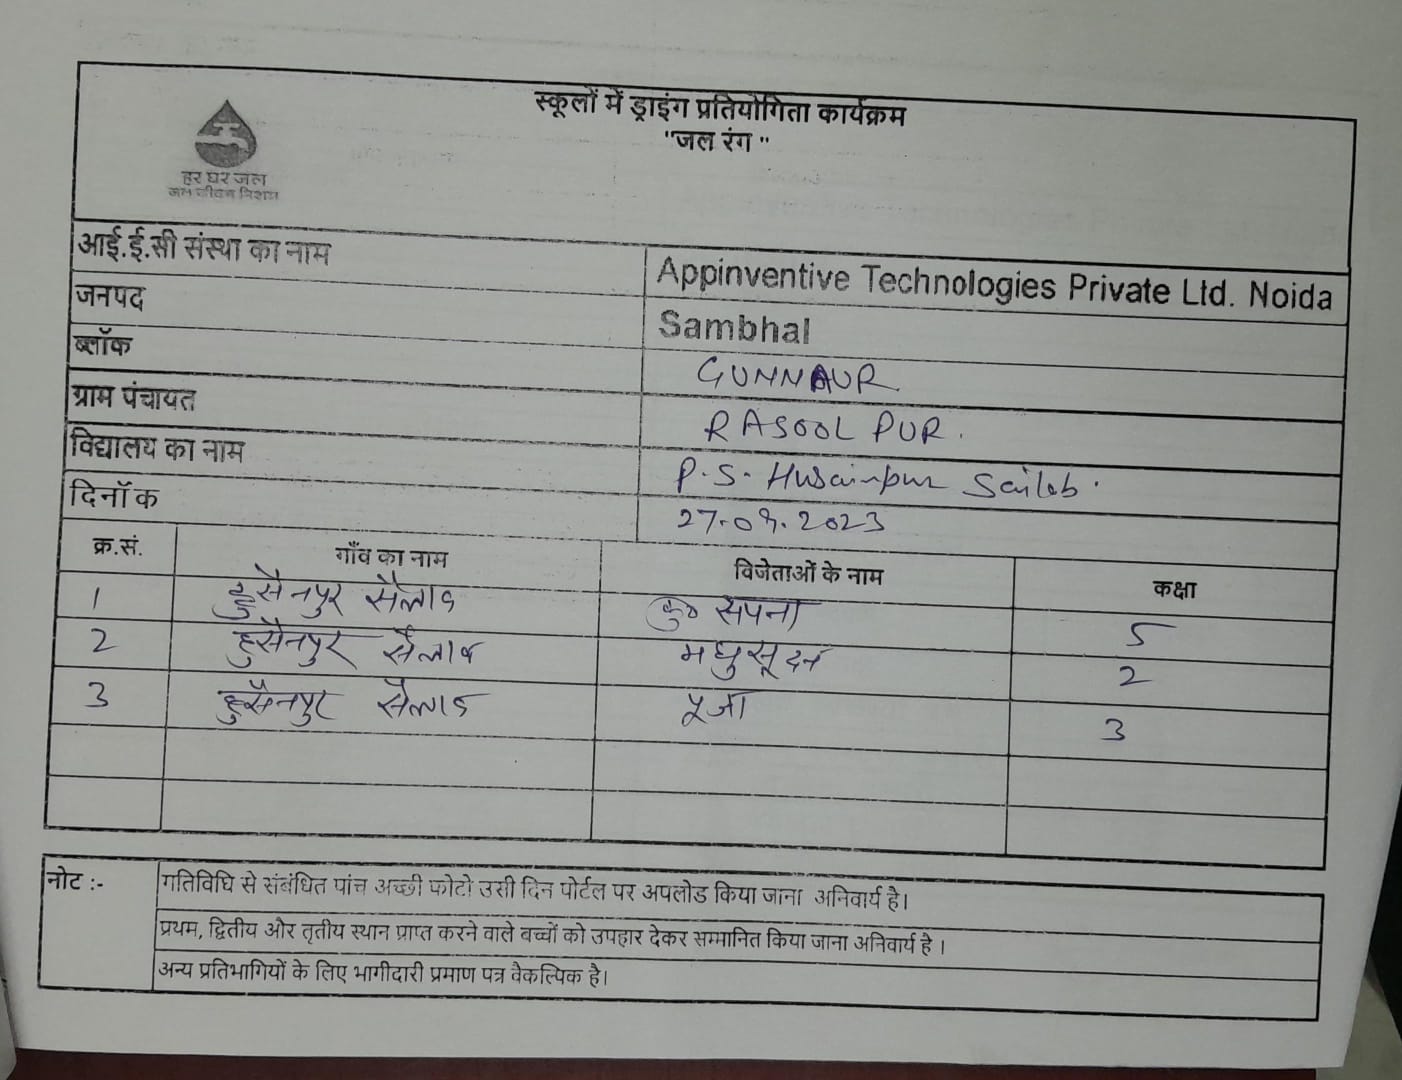 स्कूलों में ड्राइंग प्रतियोगिता कार्यक्रम
"जल रंग"
हर घर जल
जल जीवन मिशन
आई.ई.सी संस्था का नाम Appinventive Technologies Private Ltd. Noida
जनपद Sambhal
ब्लॉक GUNNAUR
ग्राम पंचायत RASOOLPUR.
विद्यालय का नाम P.S. Husainpur Sailab.
दिनॉक 27.09.2023
क्र.सं. गाँव का नाम विजेताओं के नाम कक्षा
1 हुसैनपुर सैलाब कु० सपना 5
2 हुसैनपुर सैलाब मधुसूदन 2
3 हुसैनपुर सैलाब पूजा 3
नोट :- गतिविधि से संबंधित पांच अच्छी फोटो उसी दिन पोर्टल पर अपलोड किया जाना अनिवार्य है।
प्रथम, द्वितीय और तृतीय स्थान प्राप्त करने वाले बच्चों को उपहार देकर सम्मानित किया जाना अनिवार्य है।
अन्य प्रतिभागियों के लिए भागीदारी प्रमाण पत्र वैकल्पिक है।